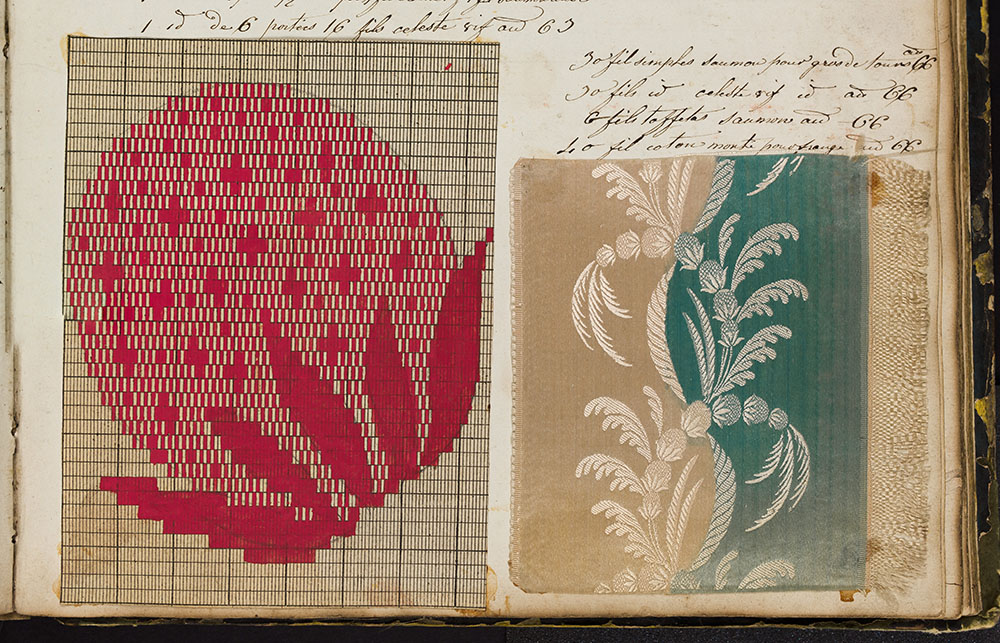 1 id de 6 portées 16 fils celeste vif au 63
30 fil simples saumon pour gros de tours au 66
30 fils id celeste vif id au 66
6 fils taffetas saumon au 66
40 fil coton monté pour au 66